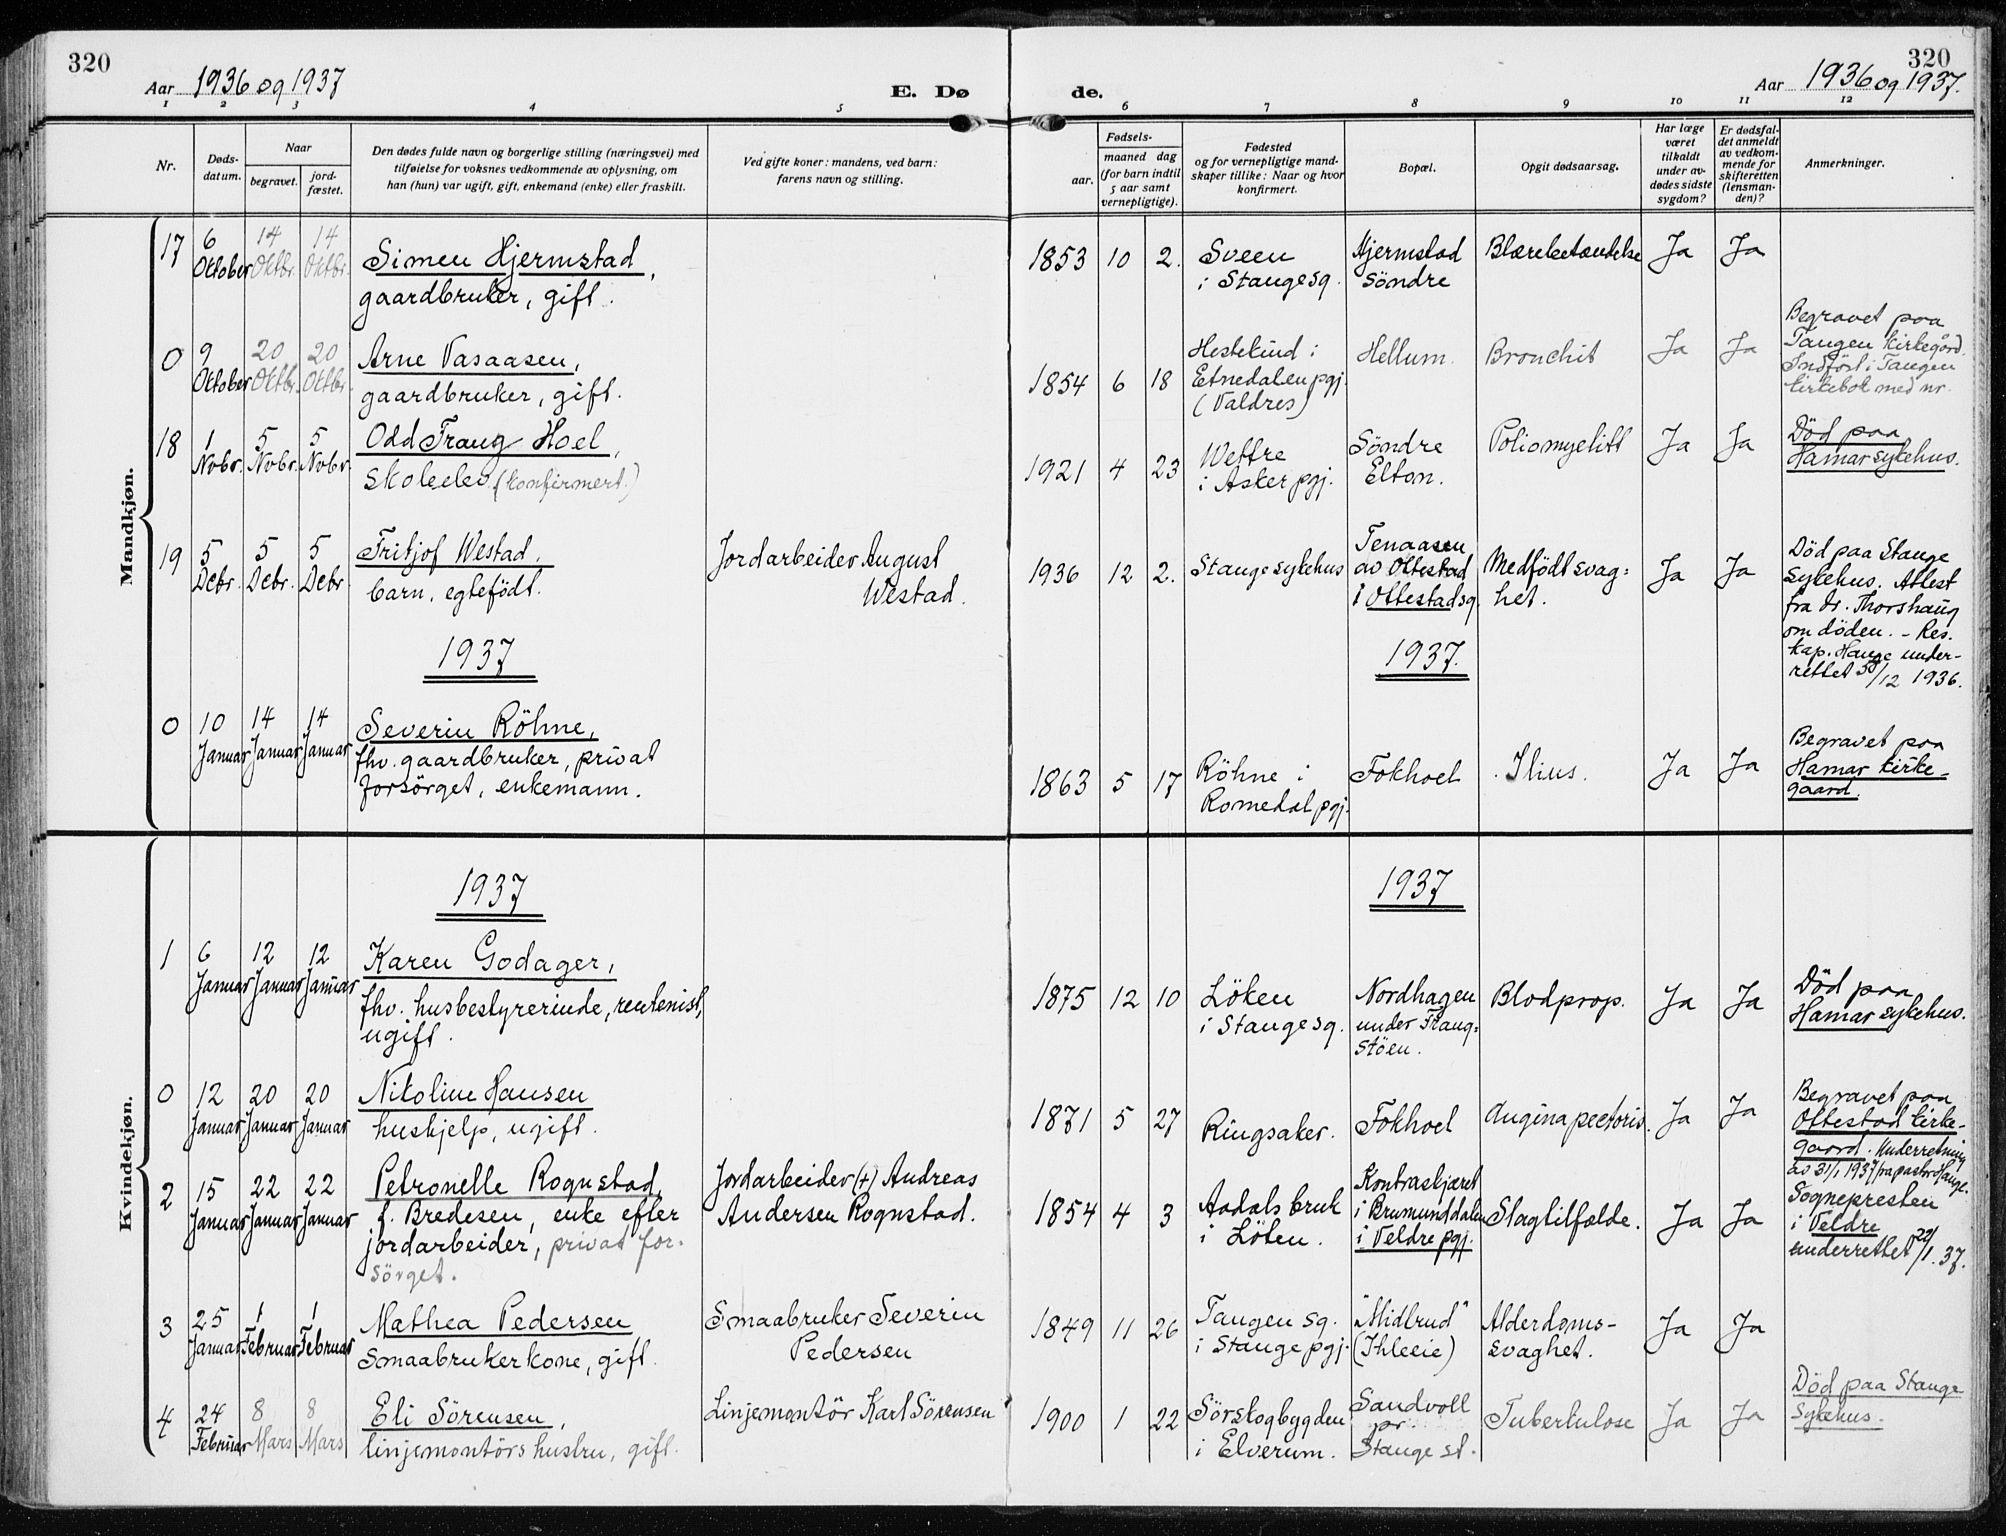 320
Aar 1936 og 1937
E. Dø
de.
Aar 1936 og 1937.
320
1 2 3 4 5 6 7 8 9 10 11 12
Nr.
Døds-
datum.
Naar
begravet.
jord-
fæstet.
Den dødes fulde navn og borgerlige stilling (næringsvei) med
tilføielse for voksnes vedkommende av oplysning, om
han (hun) var ugift, gift, enkemand (enke) eller fraskilt.
Ved gifte koner: mandens, ved barn:
farens navn og stilling.
Fødsels-
aar.
maaned dag
(for barn indtil
5 aar samt
vernepligtige).
Fødested
og for vernepligtige mand-
skaper tillike: Naar og hvor
konfirmert.
Bopæl.
Opgit dødsaarsag.
Har læge
været
tilkaldt
under av-
dødes sidste
sygdom?
Er dødsfal-
det anmeldt
av vedkom-
mende for
skifteretten
(lensman-
den)?
Anmerkninger.
Mandkjøn.
17
6
October
14
Oktbr.
14
Oktbr.
Simen Hjermstad,
gaardbruker, gift.
1853 10 2.
Sveen
i Stange sq.
Hjermstad
Söndre
Blærebetændelse
Ja
Ja
0
9
October
20
Oktbr.
20
Oktbr.
Arne Vasaasen,
gaardbruker, gift.
1854 6 18
Hestekind i
Etnedalen pgj.
(Valdres)
Hellum.
Bronchit
Ja
Ja
Begravet paa
Tangen kirkegård.
Indfört i Tangen
kirkebok med nr.
18
1
Nobr.
5
Nobr.
5
Nobr.
Odd Fraug Hoel,
skoleelev (konfirmert.)
1921 4 23
Wettre
i Asker pgj.
Söndre
Elton.
Poliomyelitt
Ja
Ja
Död paa
Hamar sykehus.
19
5
Debr.
5
Debr.
5
Debr
Fritjof Westad.
barn, egtefödt.
Jordarbeider August
Westad.
1936 12 2.
Stange sykehus
Tenaasen
av Ottestad
i Ottestad sq.
Medfödt svag=
het.
Ja
Ja
Död paa Stange
Sykehus. Attest
fra dr. Thorshaug
om döden. - Res.
kap. Hauge under-
rettet 30/12 1936.
1937
1937.
0
10
Januar
14
Januar
14
Januar
Severin Röhne,
fhv. gaardbruker, privat
forsörget, enkemann.
1863 5 17
Röhne i
Romedal pgj.
Fokhoel
Ilius.
Ja
Ja
Begravet paa
Hamar kirke-
gaard.
Kvindekjøn.
1937
1937
1
6
Januar
12
Januar
12
Januar
Karen Godager,
fhv. husbestyrerinde, rentenist,
ugift.
1875 12 10
Löken
i Stange sq.
Nordhagen
under Fraug=
Stöen.
Blodprop.
Ja
Ja
Död paa
Hamar sykehus.
0
12
Januar
20
Januar
20
Januar
Nikoline Hansen
hushjelp, ugift.
1871 5 27
Ringsaker.
Fokhoel
Angina pectoris.
Ja
Ja
Begravet paa
Ottestad kirke-
gaard. Underretning
av 31/1 1937 fra pastor Hauge.
2
15
Januar
22
Januar
22
Januar
Petronelle Rognstad,
f. Bredesen, enke efter
jordarbeider, privat for-
sörget.
Jordarbeider (+) Andreas
Andersen Rognstad.
1854 4 3
Aadals bruk
i Löten.
Kontraskjæret
i Brumunddalen
i Veldre pgj.
Slagtilfælde.
Ja
Ja
Sognepresten
i Veldre
underrettet 22/1. 37.
3
25
Januar
1
Februar
1
Februar
Mathea Pedersen
Smaabrukerkone, gift.
Smaabruker Severin
Pedersen
1849 11 26
Tangen sq.
i Stange pgj.
"Midtrud"
(Ihleeie)
Alderdoms-
svaghet.
Ja
Ja
4
24
Februar
8
Mars
8
Mars
Eli Sörensen,
linjemontörs hustru, gift.
Linjemontör Karl Sörensen
1900 1 22
Sörskogbygden
i Elverum.
Sandvoll
pr
Stange st.
Tuberkulose
Ja
Ja
Död paa Stange
Sykehus.